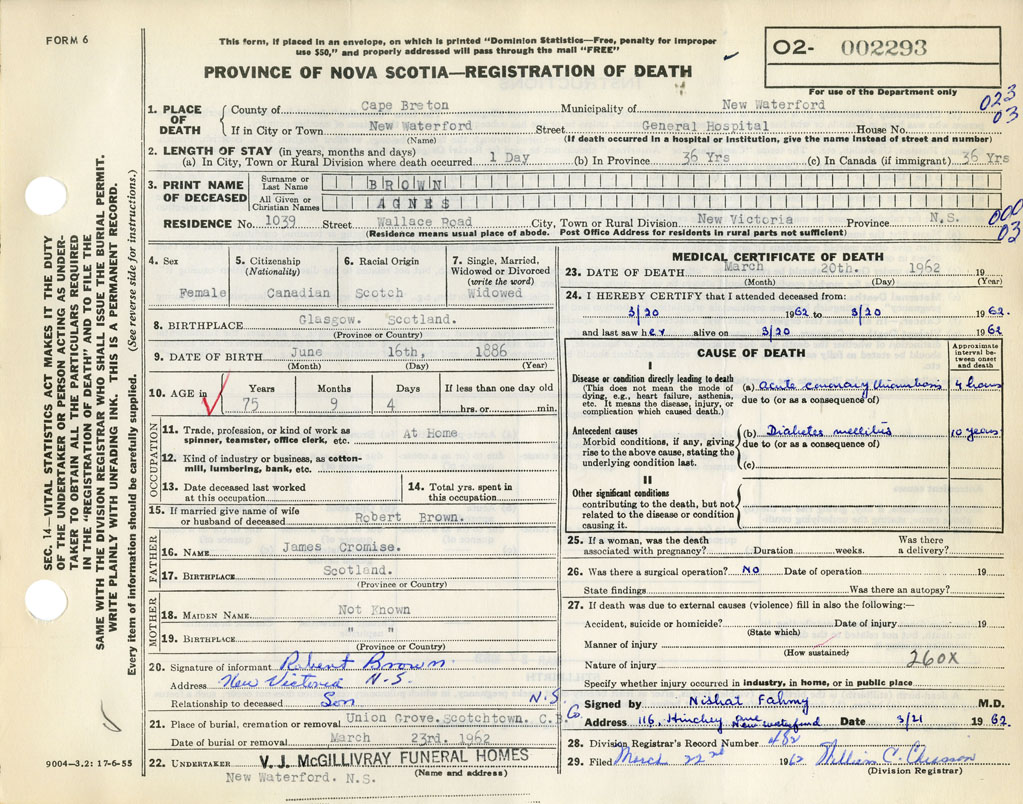 FORM 6
This form, if placed in an envelope, on which is printed "Dominion Statistics—Free, penalty for improper
use $50," and properly addressed will pass through the mail "FREE"
PROVINCE OF NOVA SCOTIA—REGISTRATION OF DEATH
02- 002293
For use of the Department only
023
03
SEC. 14—VITAL STATISTICS ACT MAKES IT THE DUTY
OF THE UNDERTAKER OR PERSON ACTING AS UNDER-
TAKER TO OBTAIN ALL THE PARTICULARS REQUIRED
IN THE "REGISTRATION OF DEATH" AND TO FILE THE
SAME WITH THE DIVISION REGISTRAR WHO SHALL ISSUE THE BURIAL PERMIT.
WRITE PLAINLY WITH UNFADING INK. THIS IS A PERMANENT RECORD.
Every item of information should be carefully supplied. (See reverse side for instructions.)
1. PLACE OF DEATH County of Cape Breton Municipality of New Waterford
If in City or Town New Waterford Street General Hospital House No.
(Name) (If death occurred in a hospital or institution, give the name instead of street and number)
2. LENGTH OF STAY (in years, months and days)
(a) In City, Town or Rural Division where death occurred 1 Day (b) In Province 36 Yrs (c) In Canada (if immigrant) 36 Yrs
3. PRINT NAME OF DECEASED Surname or Last Name BROWN
All Given or Christian Names AGNES
RESIDENCE No. 1039 Street Wallace Road City, Town or Rural Division New Victoria Province N.S.
(Residence means usual place of abode. Post Office Address for residents in rural parts not sufficient)
000
03
4. Sex Female
5. Citizenship (Nationality) Canadian
6. Racial Origin Scotch
7. Single, Married, Widowed or Divorced (write the word) Widowed
8. BIRTHPLACE Glasgow. Scotland.
(Province or Country)
9. DATE OF BIRTH June 16th, 1886
(Month) (Day) (Year)
10. AGE in Years 75 Months 9 Days 4 If less than one day old hrs. or min.
OCCUPATION
11. Trade, profession, or kind of work as spinner, teamster, office clerk, etc. At Home
12. Kind of industry or business, as cotton-mill, lumbering, bank, etc.
13. Date deceased last worked at this occupation
14. Total yrs. spent in this occupation
15. If married give name of wife or husband of deceased Robert Brown.
FATHER
16. NAME James Cromise.
17. BIRTHPLACE Scotland.
(Province or Country)
MOTHER
18. MAIDEN NAME Not Known
19. BIRTHPLACE " "
(Province or Country)
20. Signature of informant Robert Brown
Address New Victoria N.S.
Relationship to deceased Son N.S
21. Place of burial, cremation or removal Union Grove. Scotchtown. C.B.
Date of burial or removal March 23rd. 1962
22. UNDERTAKER V. J. McGILLIVRAY FUNERAL HOMES
New Waterford. N.S. (Name and address)
9004—3.2: 17-6-55
MEDICAL CERTIFICATE OF DEATH
23. DATE OF DEATH March 20th. 1962 19
(Month) (Day) (Year)
24. I HEREBY CERTIFY that I attended deceased from:
3/20 1962 to 3/20 1962.
and last saw her alive on 3/20 1962
CAUSE OF DEATH
Approximate interval between onset and death
I
Disease or condition directly leading to death
(This does not mean the mode of dying, e.g., heart failure, asthenia, etc. It means the disease, injury, or complication which caused death.)
(a) Acute coronary thrombosis 4 hours
due to (or as a consequence of)
Antecedent causes
Morbid conditions, if any, giving rise to the above cause, stating the underlying condition last.
(b) Diabetes mellitus 10 years
due to (or as a consequence of)
(c)
II
Other significant conditions
contributing to the death, but not related to the disease or condition causing it.
25. If a woman, was the death associated with pregnancy? Duration weeks. Was there a delivery?
26. Was there a surgical operation? NO Date of operation 19
State findings Was there an autopsy?
27. If death was due to external causes (violence) fill in also the following:—
Accident, suicide or homicide? Date of injury 19
(State which)
Manner of injury
(How sustained)
Nature of injury 260X
Specify whether injury occurred in industry, in home, or in public place
Signed by Nishat Fahmy M.D.
Address 116, Hinchey Ave New Waterford Date 3/21 1962.
28. Division Registrar's Record Number 482
29. Filed March 22nd 1962 William C. Chiasson
(Division Registrar)